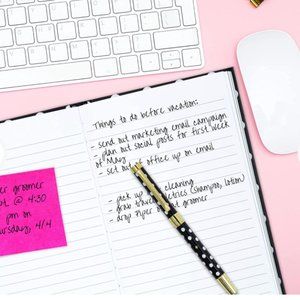 Things to do before vacation:
- send out marketing email campaign
- plan out social posts for first week
of May
- set out office up on email
- pick up cleaning
- grab travel (shampoo, lotion)
- drop Piper groomer
groomer
@ 4:30
pm on
4/4